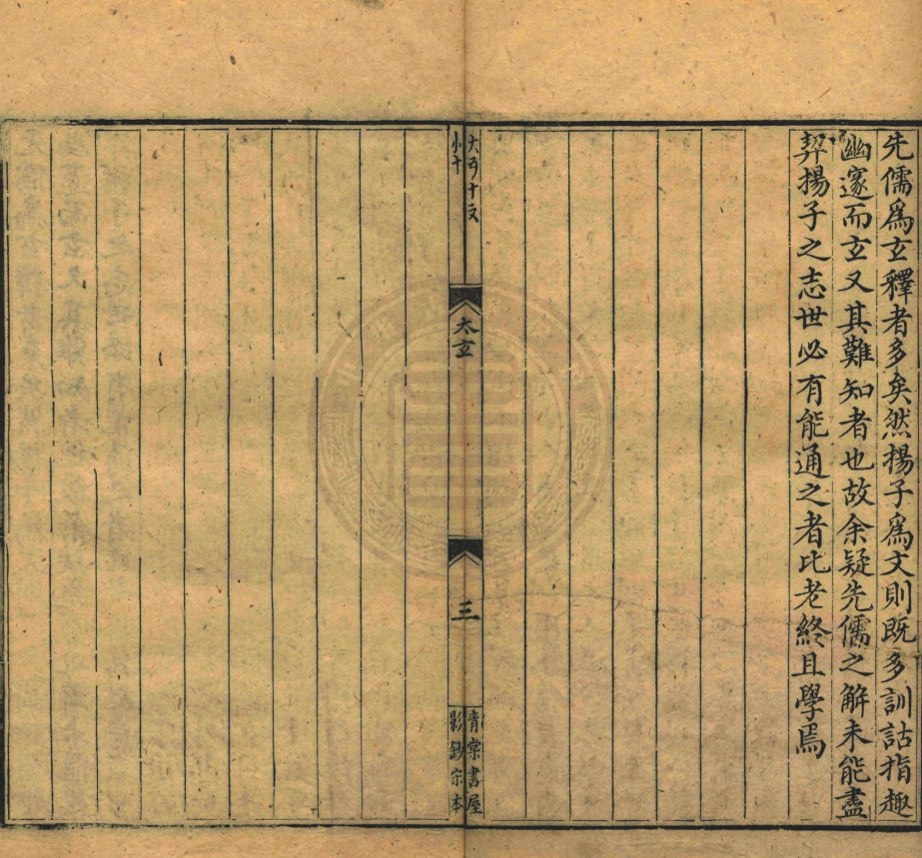 先儒爲玄釋者多矣然揚子爲文則既多訓詁指趣
幽邃而玄又其難知者也故余疑先儒之解未能盡
契揚子之志世必有能通之者比老終且學焉
小十
太玄
三
青寀書屋
影鈔宗本